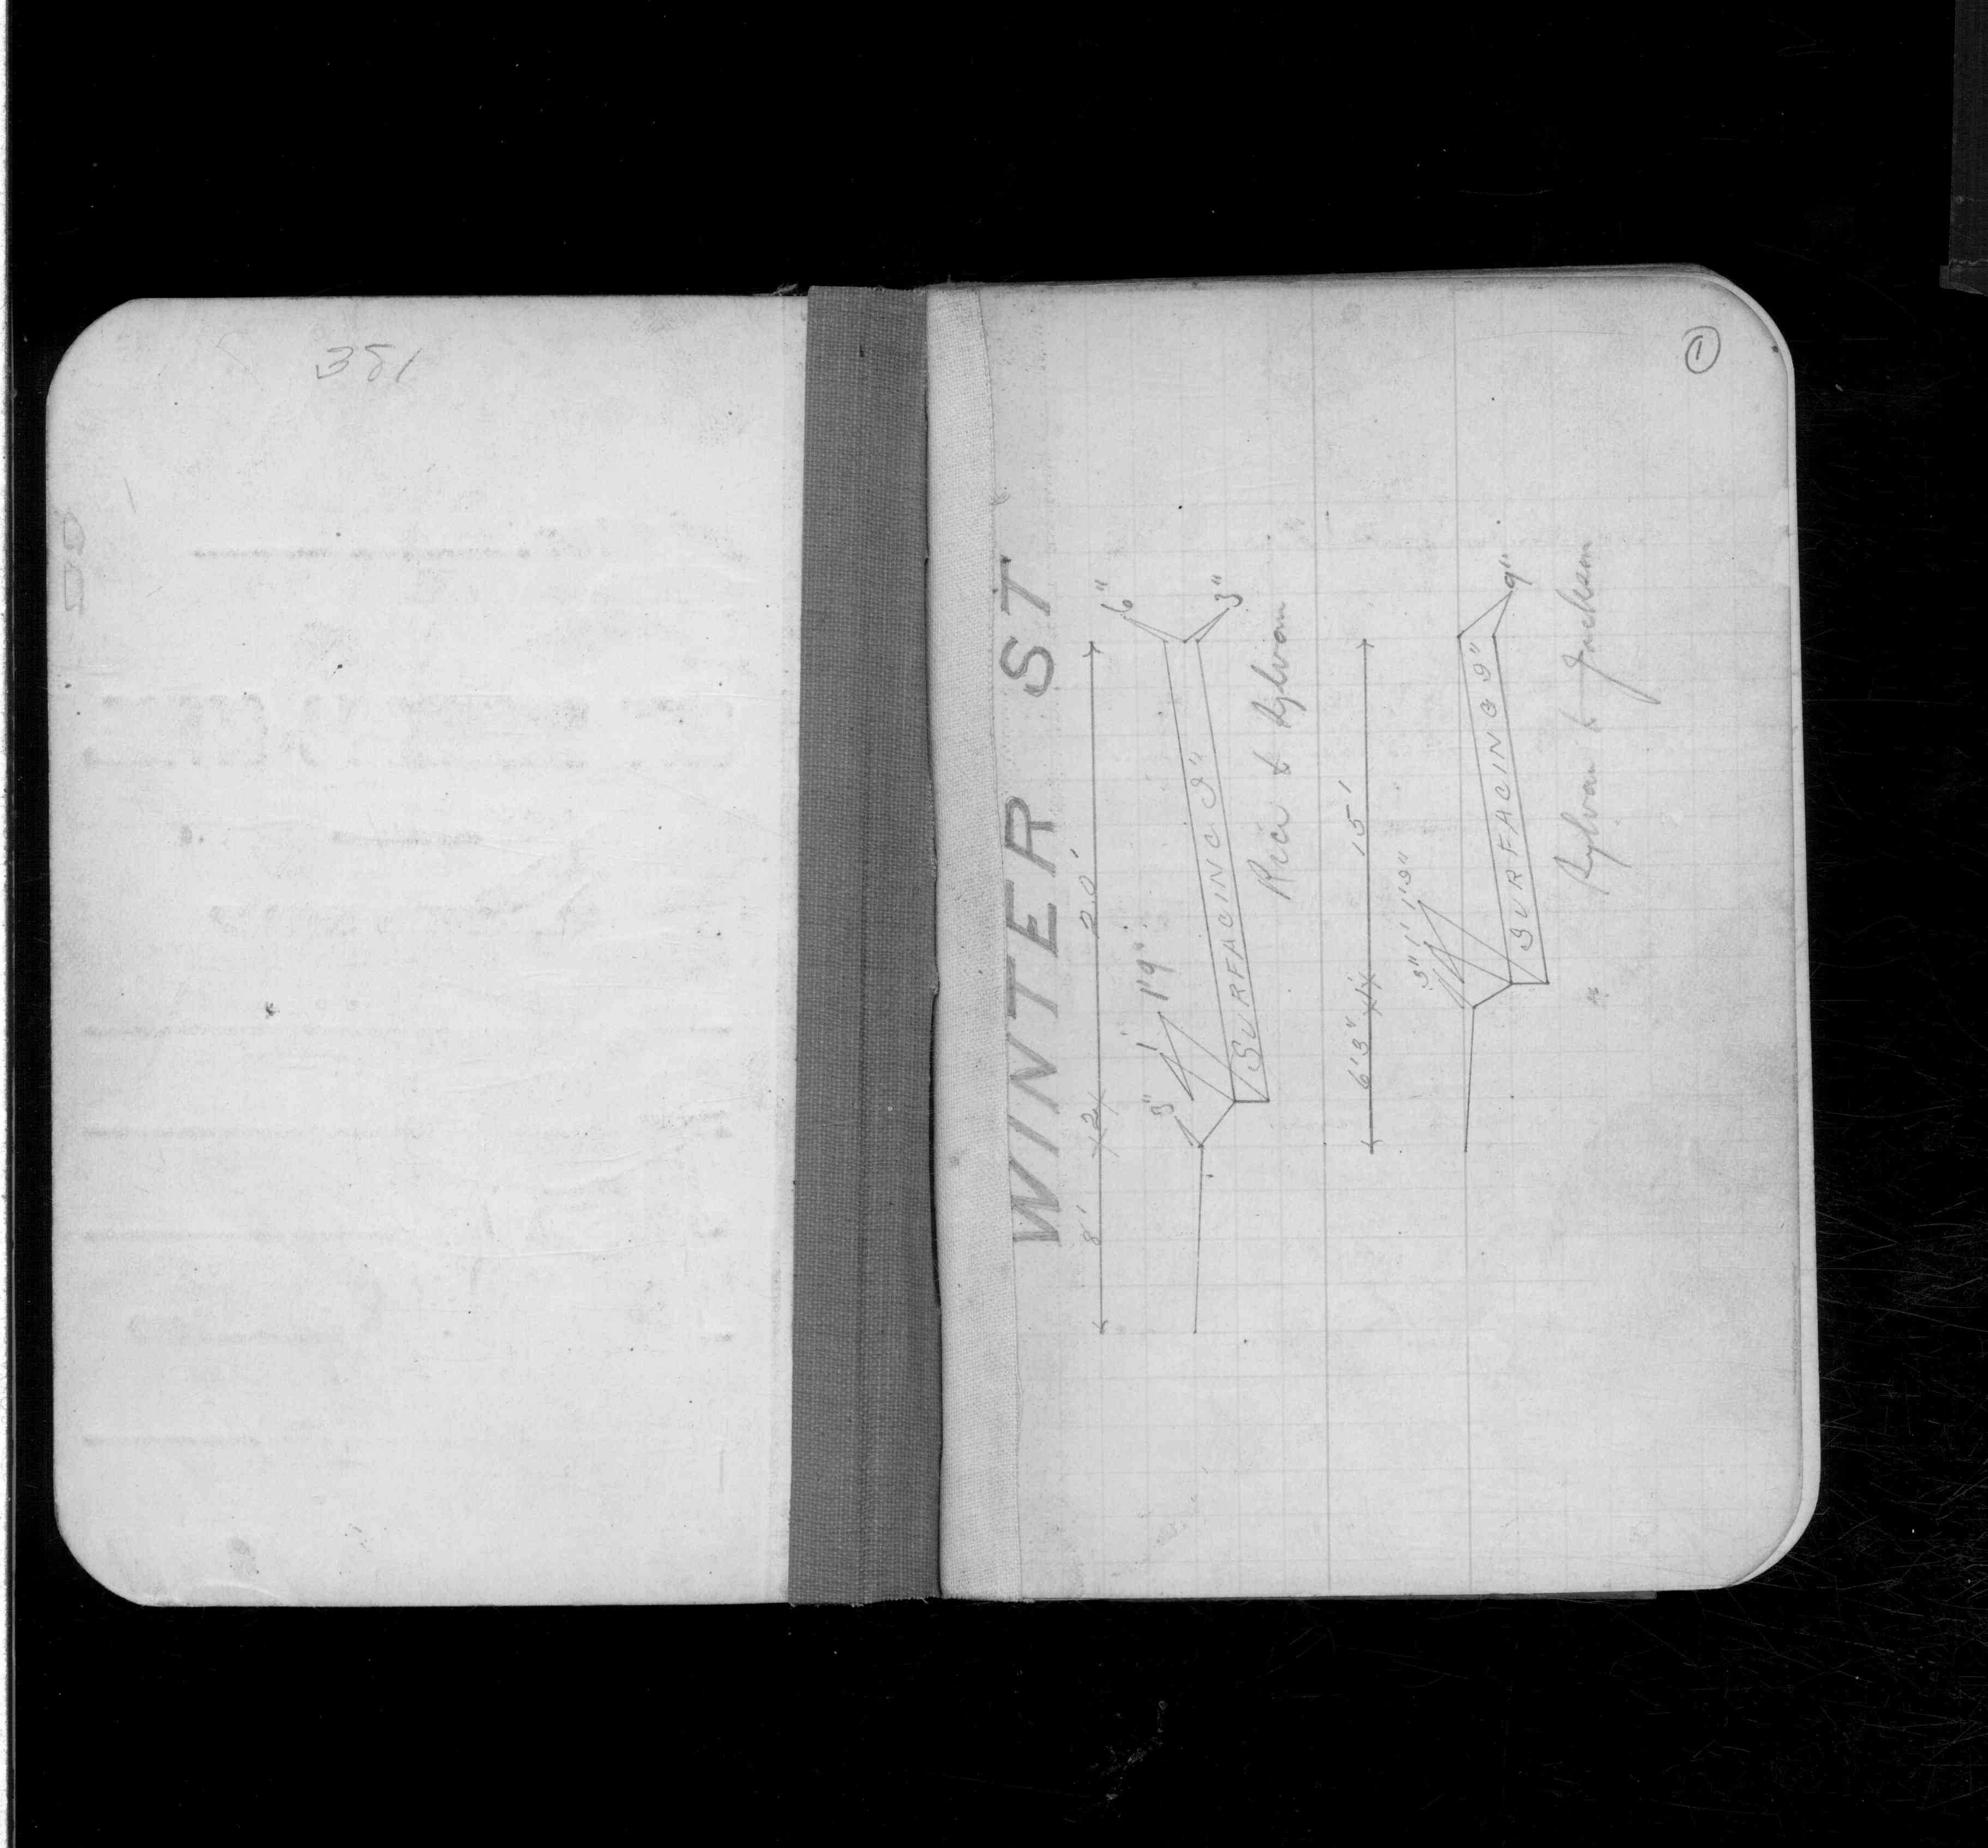 381
1
WINTER ST
8' 2' 20'
6"
3" 1' 1'9"
SURFACING 9"
3"
Rice to Rylvan
6'3" 1' 15'
3" 1' 1'9"
SURFACING 9"
9"
Rylvan to Jackson